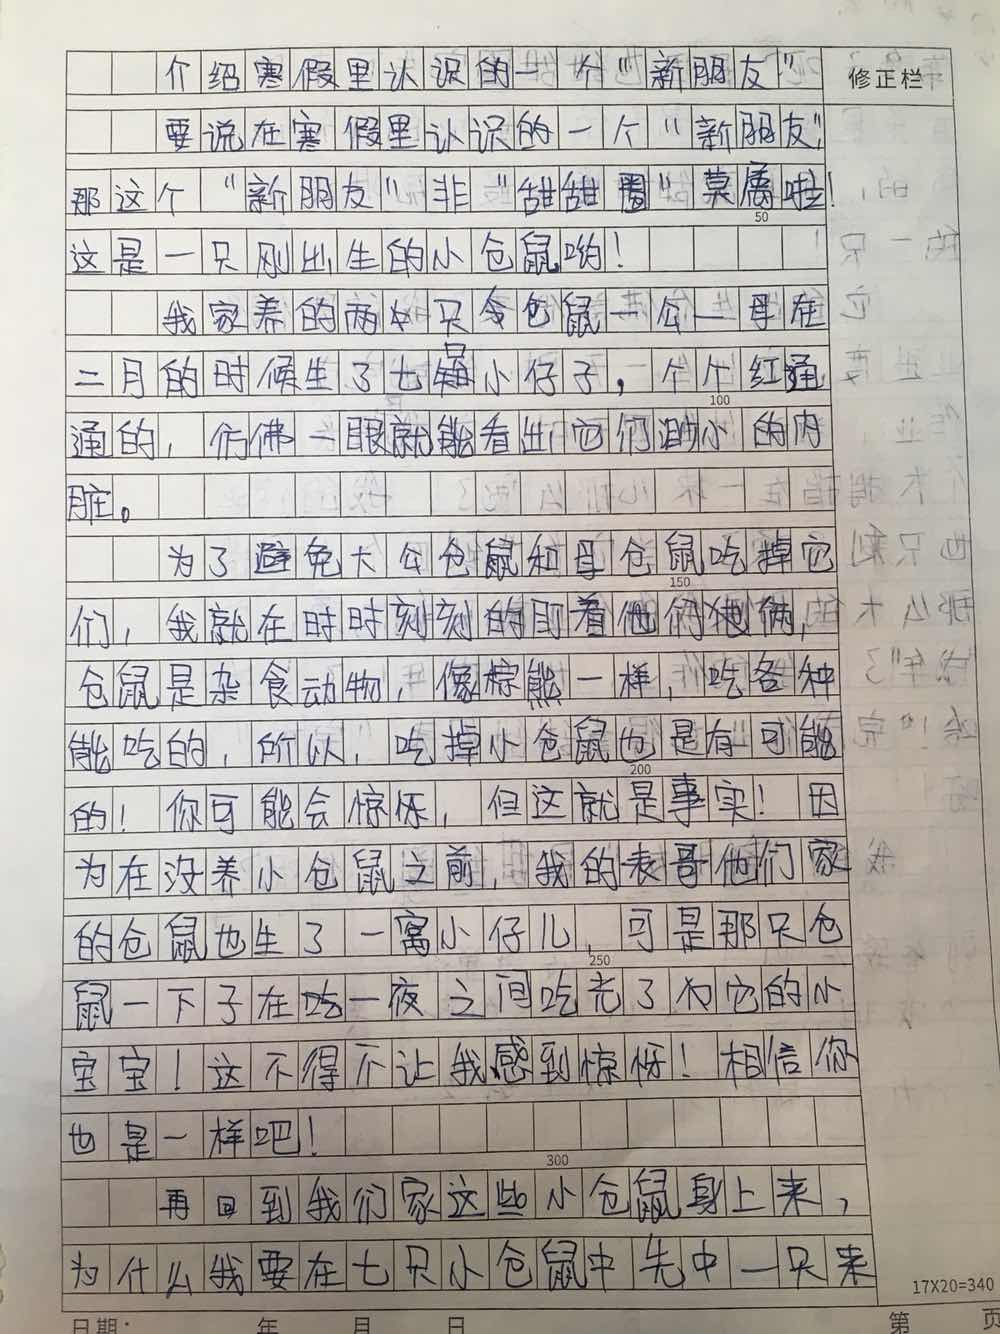 介绍寒假里认识的一个“新朋友”
修正栏
要说在寒假里认识的一个“新朋友”，
那这个“新朋友”非“甜甜圈”莫属啦！
50
这是一只刚出生的小仓鼠哟！
我家养的两只仓鼠一公一母在
二月的时候生了七只小仔子，个个红通
100
通的，仿佛一眼就能看出它们小小的内
脏。
为了避免大公仓鼠和母仓鼠吃掉它
150
们，我就在时时刻刻的盯着他们俩，
仓鼠是杂食动物，像棕熊一样，吃各种
能吃的，所以，吃掉小仓鼠也是有可能
200
的！你可能会惊怀，但这就是事实！因
为在没养小仓鼠之前，我的表哥他们家
的仓鼠也生了一窝小仔儿，可是那只仓
250
鼠一下子在一夜之间吃光了它的小
宝宝！这不得不让我感到惊怀！相信你
也是一样吧！
300
再回到我们家这些小仓鼠身上来，
为什么我要在七只小仓鼠中先中一只来
17X20=340
日期： 年 月 日 第 页